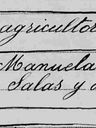 agricultor
Manuela
Salas y d